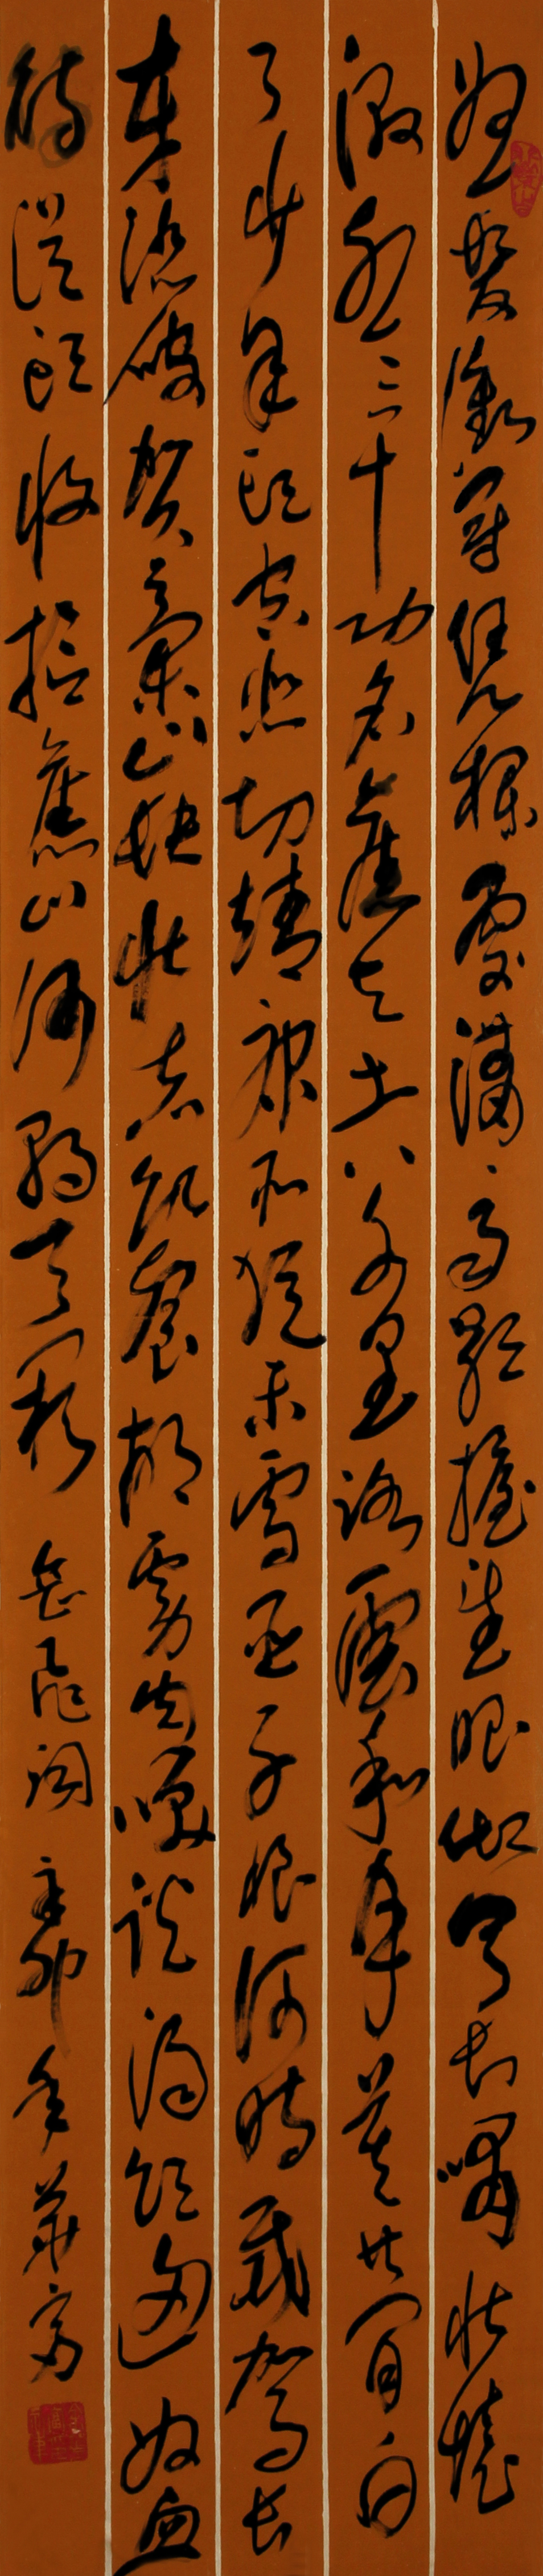 怒髮衝冠憑欄處瀟瀟雨歇擡望眼仰天長嘯壯懷
激烈三十功名塵與土八千里路雲和月莫等閒白
了少年頭空悲切靖康恥猶未雪臣子恨何時滅駕長
車踏破賀蘭山缺壯志飢餐胡虜肉笑談渴飲匈奴血
待從頭收拾舊山河朝天闕 岳飛詞 辛卯年